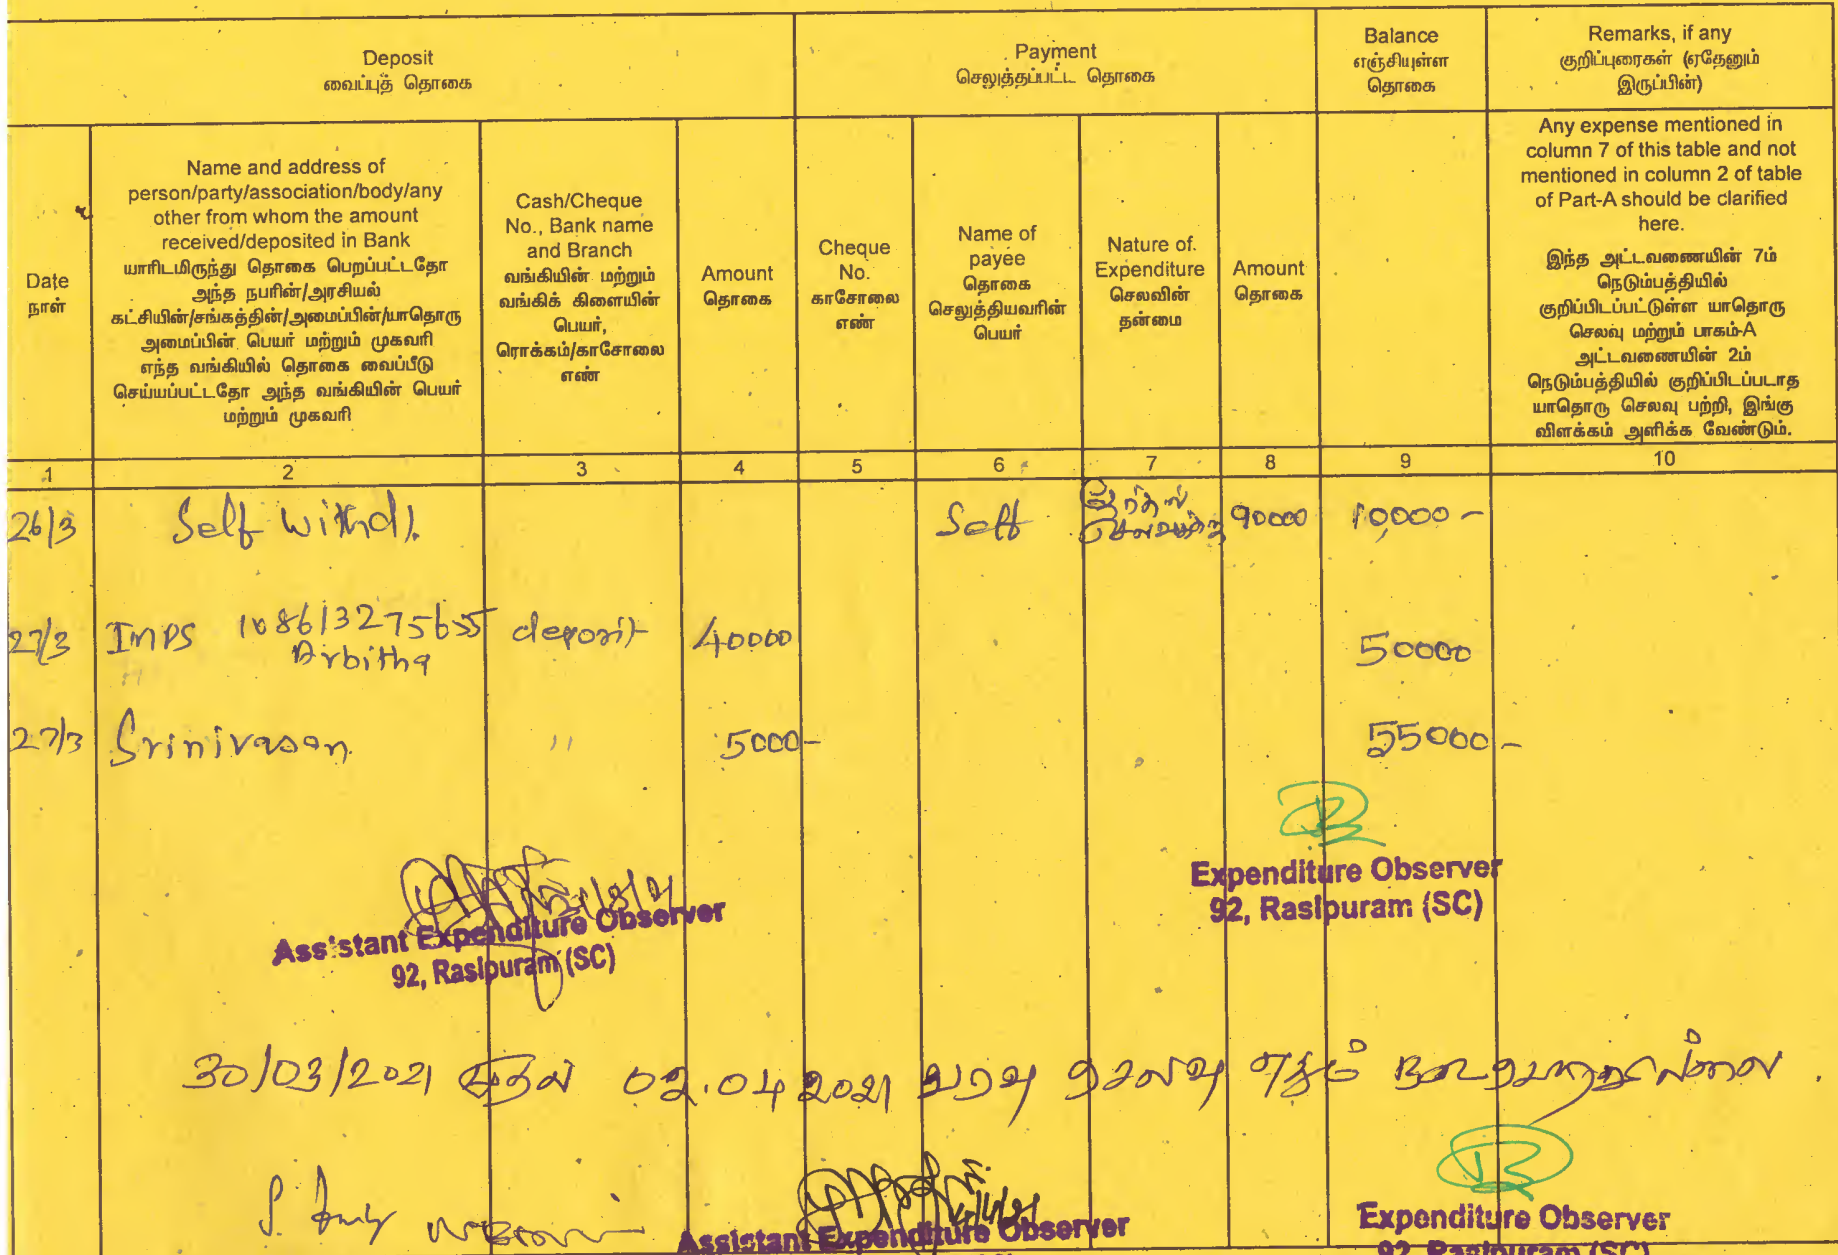 Deposit
வைப்புத் தொகை
Payment
செலுத்தப்பட்ட தொகை
Balance
எஞ்சியுள்ள
தொகை
Remarks, if any
குறிப்புரைகள் (ஏதேனும்
இருப்பின்)
Date
நாள்
Name and address of
person/party/association/body/any
other from whom the amount
received/deposited in Bank
யாரிடமிருந்து தொகை பெறப்பட்டதோ
அந்த நபரின்/அரசியல்
கட்சியின்/சங்கத்தின்/அமைப்பின்/யாதொரு
அமைப்பின் பெயர் மற்றும் முகவரி
எந்த வங்கியில் தொகை வைப்பீடு
செய்யப்பட்டதோ அந்த வங்கியின் பெயர்
மற்றும் முகவரி
Cash/Cheque
No., Bank name
and Branch
வங்கியின் மற்றும்
வங்கிக் கிளையின்
பெயர்,
ரொக்கம்/காசோலை
எண்
Amount
தொகை
Cheque
No.
காசோலை
எண்
Name of
payee
தொகை
செலுத்தியவரின்
பெயர்
Nature of
Expenditure
செலவின்
தன்மை
Amount
தொகை
Any expense mentioned in
column 7 of this table and not
mentioned in column 2 of table
of Part-A should be clarified
here.
இந்த அட்டவணையின் 7ம்
நெடும்பத்தியில்
குறிப்பிடப்பட்டுள்ள யாதொரு
செலவு மற்றும் பாகம்-A
அட்டவணையின் 2ம்
நெடும்பத்தியில் குறிப்பிடப்படாத
யாதொரு செலவு பற்றி, இங்கு
விளக்கம் அளிக்க வேண்டும்.
1 2 3 4 5 6 7 8 9 10
26/3 Self withdl. Self தேர்தல் செலவுக்கு 90000 10,000 -
27/3 IMPS deposit 40000 50000
27/3 Srinivasan. " 5000- 55000-
Expenditure Observer
92, Rasipuram (SC)
Assistant Expenditure Observer
92, Rasipuram (SC)
30/03/2021 முதல் 02.04 2021 வரவு செலவு ஏதும் நடைபெறவில்லை.
Assistant Expenditure Observer
Expenditure Observer
92, Rasipuram (SC)